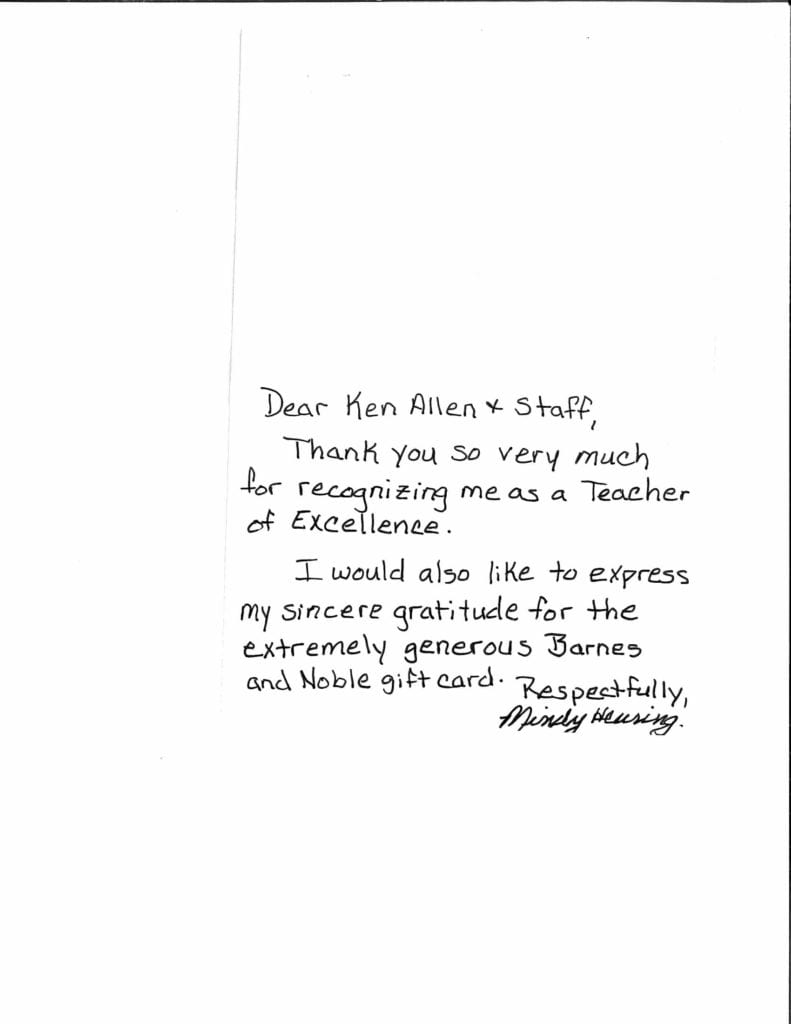 Dear Ken Allen + Staff,
Thank you so very much
for recognizing me as a Teacher
of Excellence.
I would also like to express
my sincere gratitude for the
extremely generous Barnes
and Noble gift card.
Respectfully,
Mindy